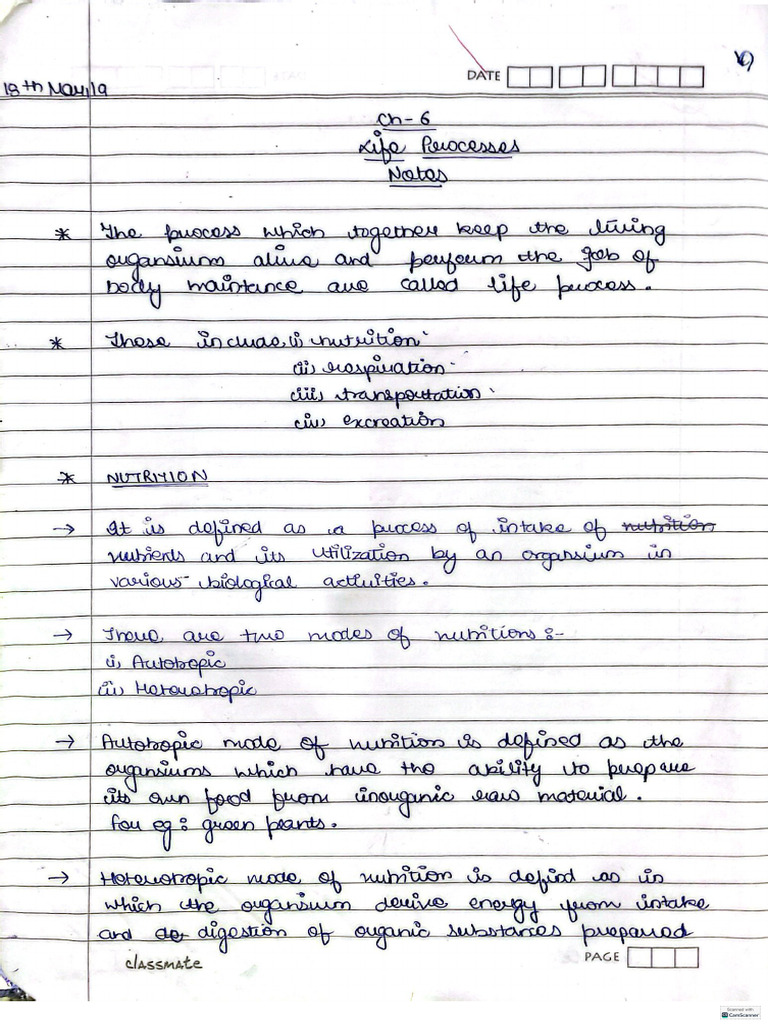 DATE
18th May,19
Ch-6
Life Processes
Notes
* The process which together keep the living
organsium alive and perform the job of
body maintance are called life process.
* These include, i) nutrition
(ii) respiration
(iii) transportation
(iv) excreation
* NUTRITION
→ It is defined as a process of intake of nutrition
nutrients and its utilization by an organsium in
various biological activities.
→ There are two modes of nutritions :-
i) Autotropic
ii) Heterotropic
→ Autotropic mode of nutrition is defined as the
organsiums which have the ability to prepare
its own food from inorganic raw material.
for eg : green peants.
→ Heterotropic mode of nutrition is defind as in
which the organsium derive energy from intake
and de digestion of organic substances prepared
classmate
PAGE
Scanned with
CamScanner